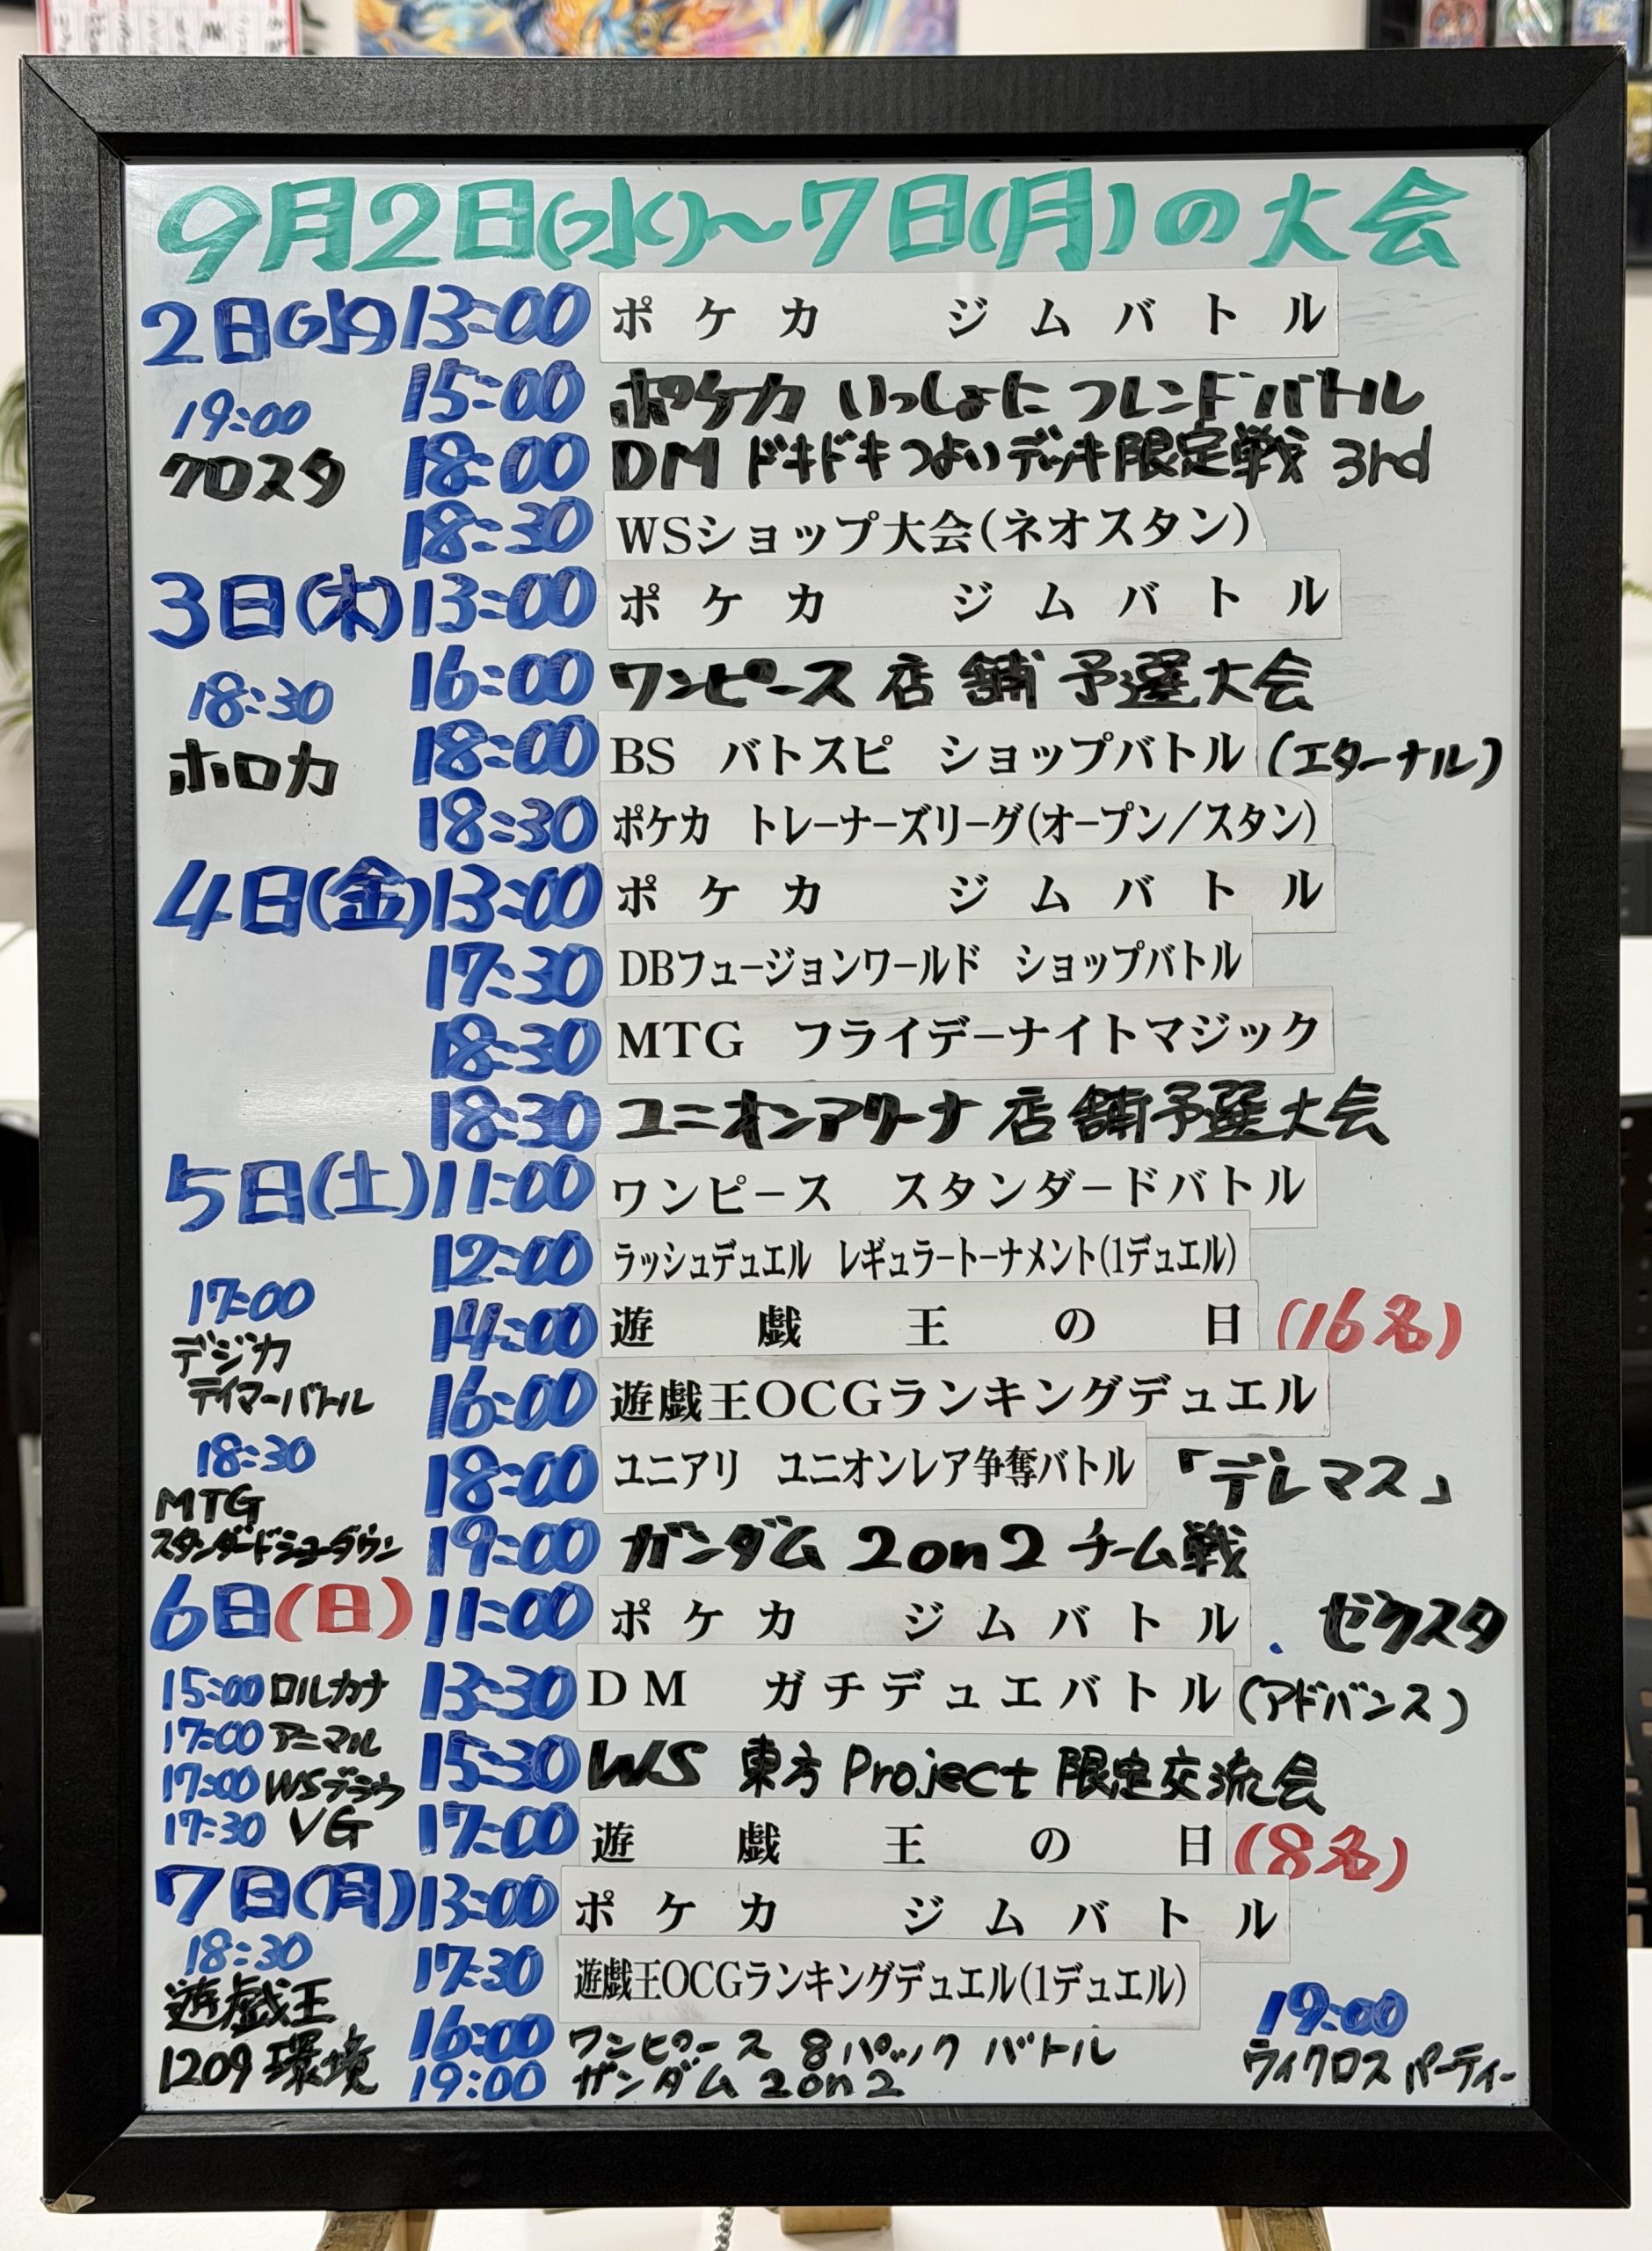 9月2日(水)~7日(月)の大会
2日(水) 13:00 ポケカ ジムバトル
15:00 ポケカ いっしょに フレンドバトル
19:00
クロスタ
18:00 DM ドキドキつよいデッキ限定戦 3rd
18:30 WSショップ大会(ネオスタン)
3日(木) 13:00 ポケカ ジムバトル
16:00 ワンピース 店舗予選大会
18:30
ホロカ
18:00 BS バトスピ ショップバトル (エターナル)
18:30 ポケカ トレーナーズリーグ(オープン/スタン)
4日(金) 13:00 ポケカ ジムバトル
17:30 DBフュージョンワールド ショップバトル
18:30 MTG フライデーナイトマジック
18:30 ユニオンアリーナ 店舗予選大会
5日(土) 11:00 ワンピース スタンダードバトル
12:00 ラッシュデュエル レギュラートーナメント(1デュエル)
17:00
デジカ
テイマーバトル
14:00 遊戯王の日 (16名)
16:00 遊戯王OCGランキングデュエル
18:30
MTG
スタンダードショーダウン
18:00 ユニアリ ユニオンレア争奪バトル 「デレマス」
19:00 ガンダム 2on2 チーム戦
6日(日) 11:00 ポケカ ジムバトル . ゼクスタ
15:00 ロルカナ
17:00 アニマル
17:00 WSブラウ
17:30 VG
13:30 DM ガチデュエバトル (アドバンス)
15:30 WS 東方Project 限定交流会
17:00 遊戯王の日 (8名)
7日(月) 13:00 ポケカ ジムバトル
18:30
遊戯王
1209環境
17:30 遊戯王OCGランキングデュエル(1デュエル)
16:00 ワンピース 8パック バトル
19:00 ガンダム 2on2
19:00
ウィクロス パーティー